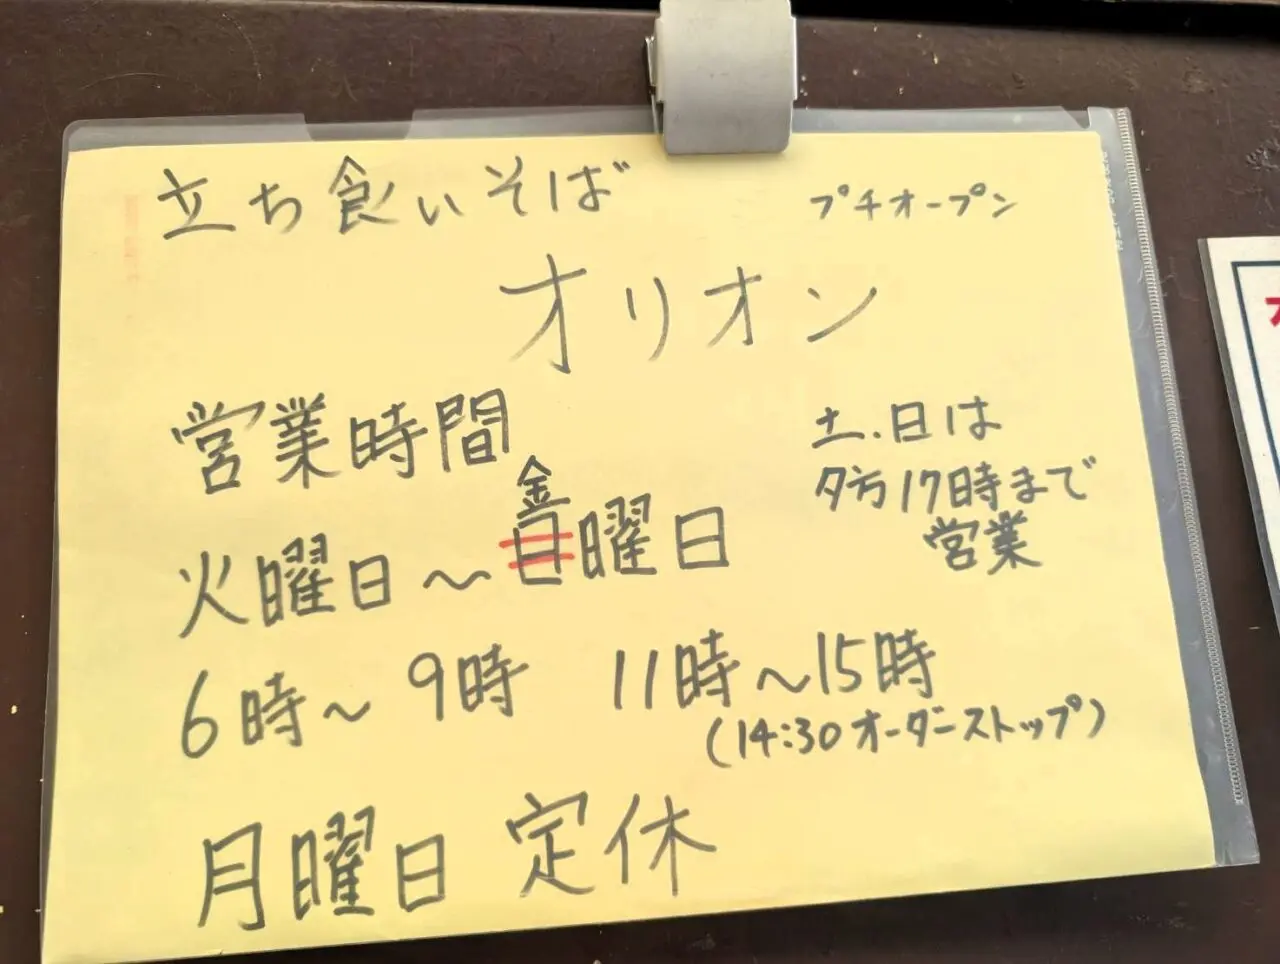 立ち食いそば
プチオープン
オリオン
営業時間
金
火曜日～日曜日
土.日は
夕方17時まで
営業
6時～9時 11時～15時
(14:30オーダーストップ)
月曜日 定休